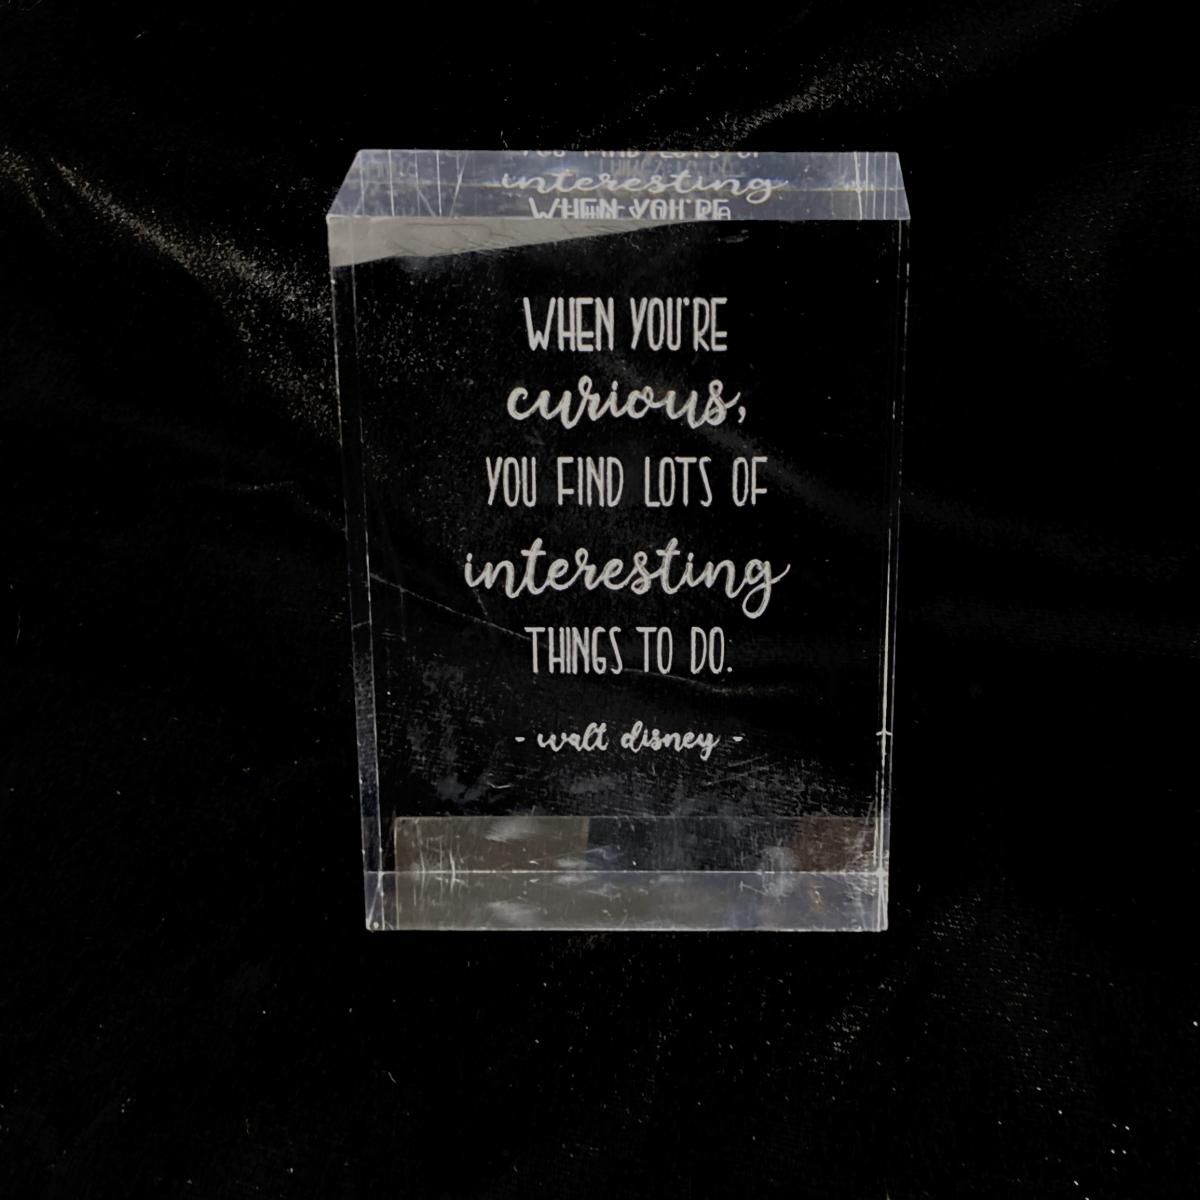 WHEN YOU'RE
curious,
YOU FIND LOTS OF
interesting
THINGS TO DO.
- walt disney -